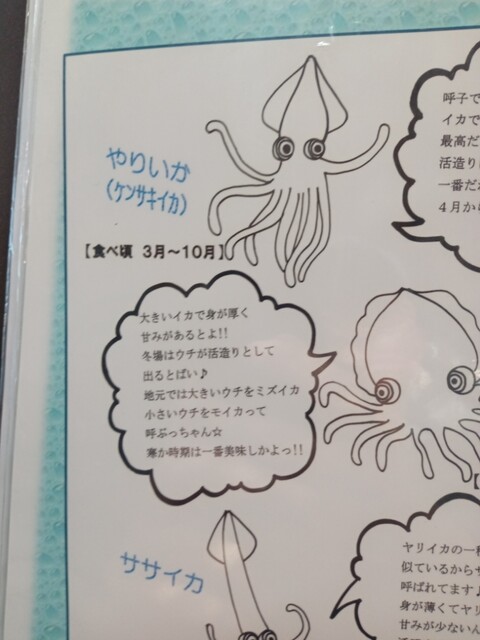 呼子で
イカで
最高だ
活造り
一番だ
4月から
やりいか
(ケンサキイカ)
【食べ頃 3月〜10月】
大きいイカで身が厚く
甘みがあるとよ!!
冬場はウチが活造りとして
出るとばい♪
地元では大きいウチをミズイカ
小さいウチをモイカって
呼ぶっちゃん☆
寒か時期は一番美味しかよっ!!
ササイカ
ヤリイカの一種
似ているからサ
呼ばれてます♪
身が薄くてヤリ
甘みが少ないん